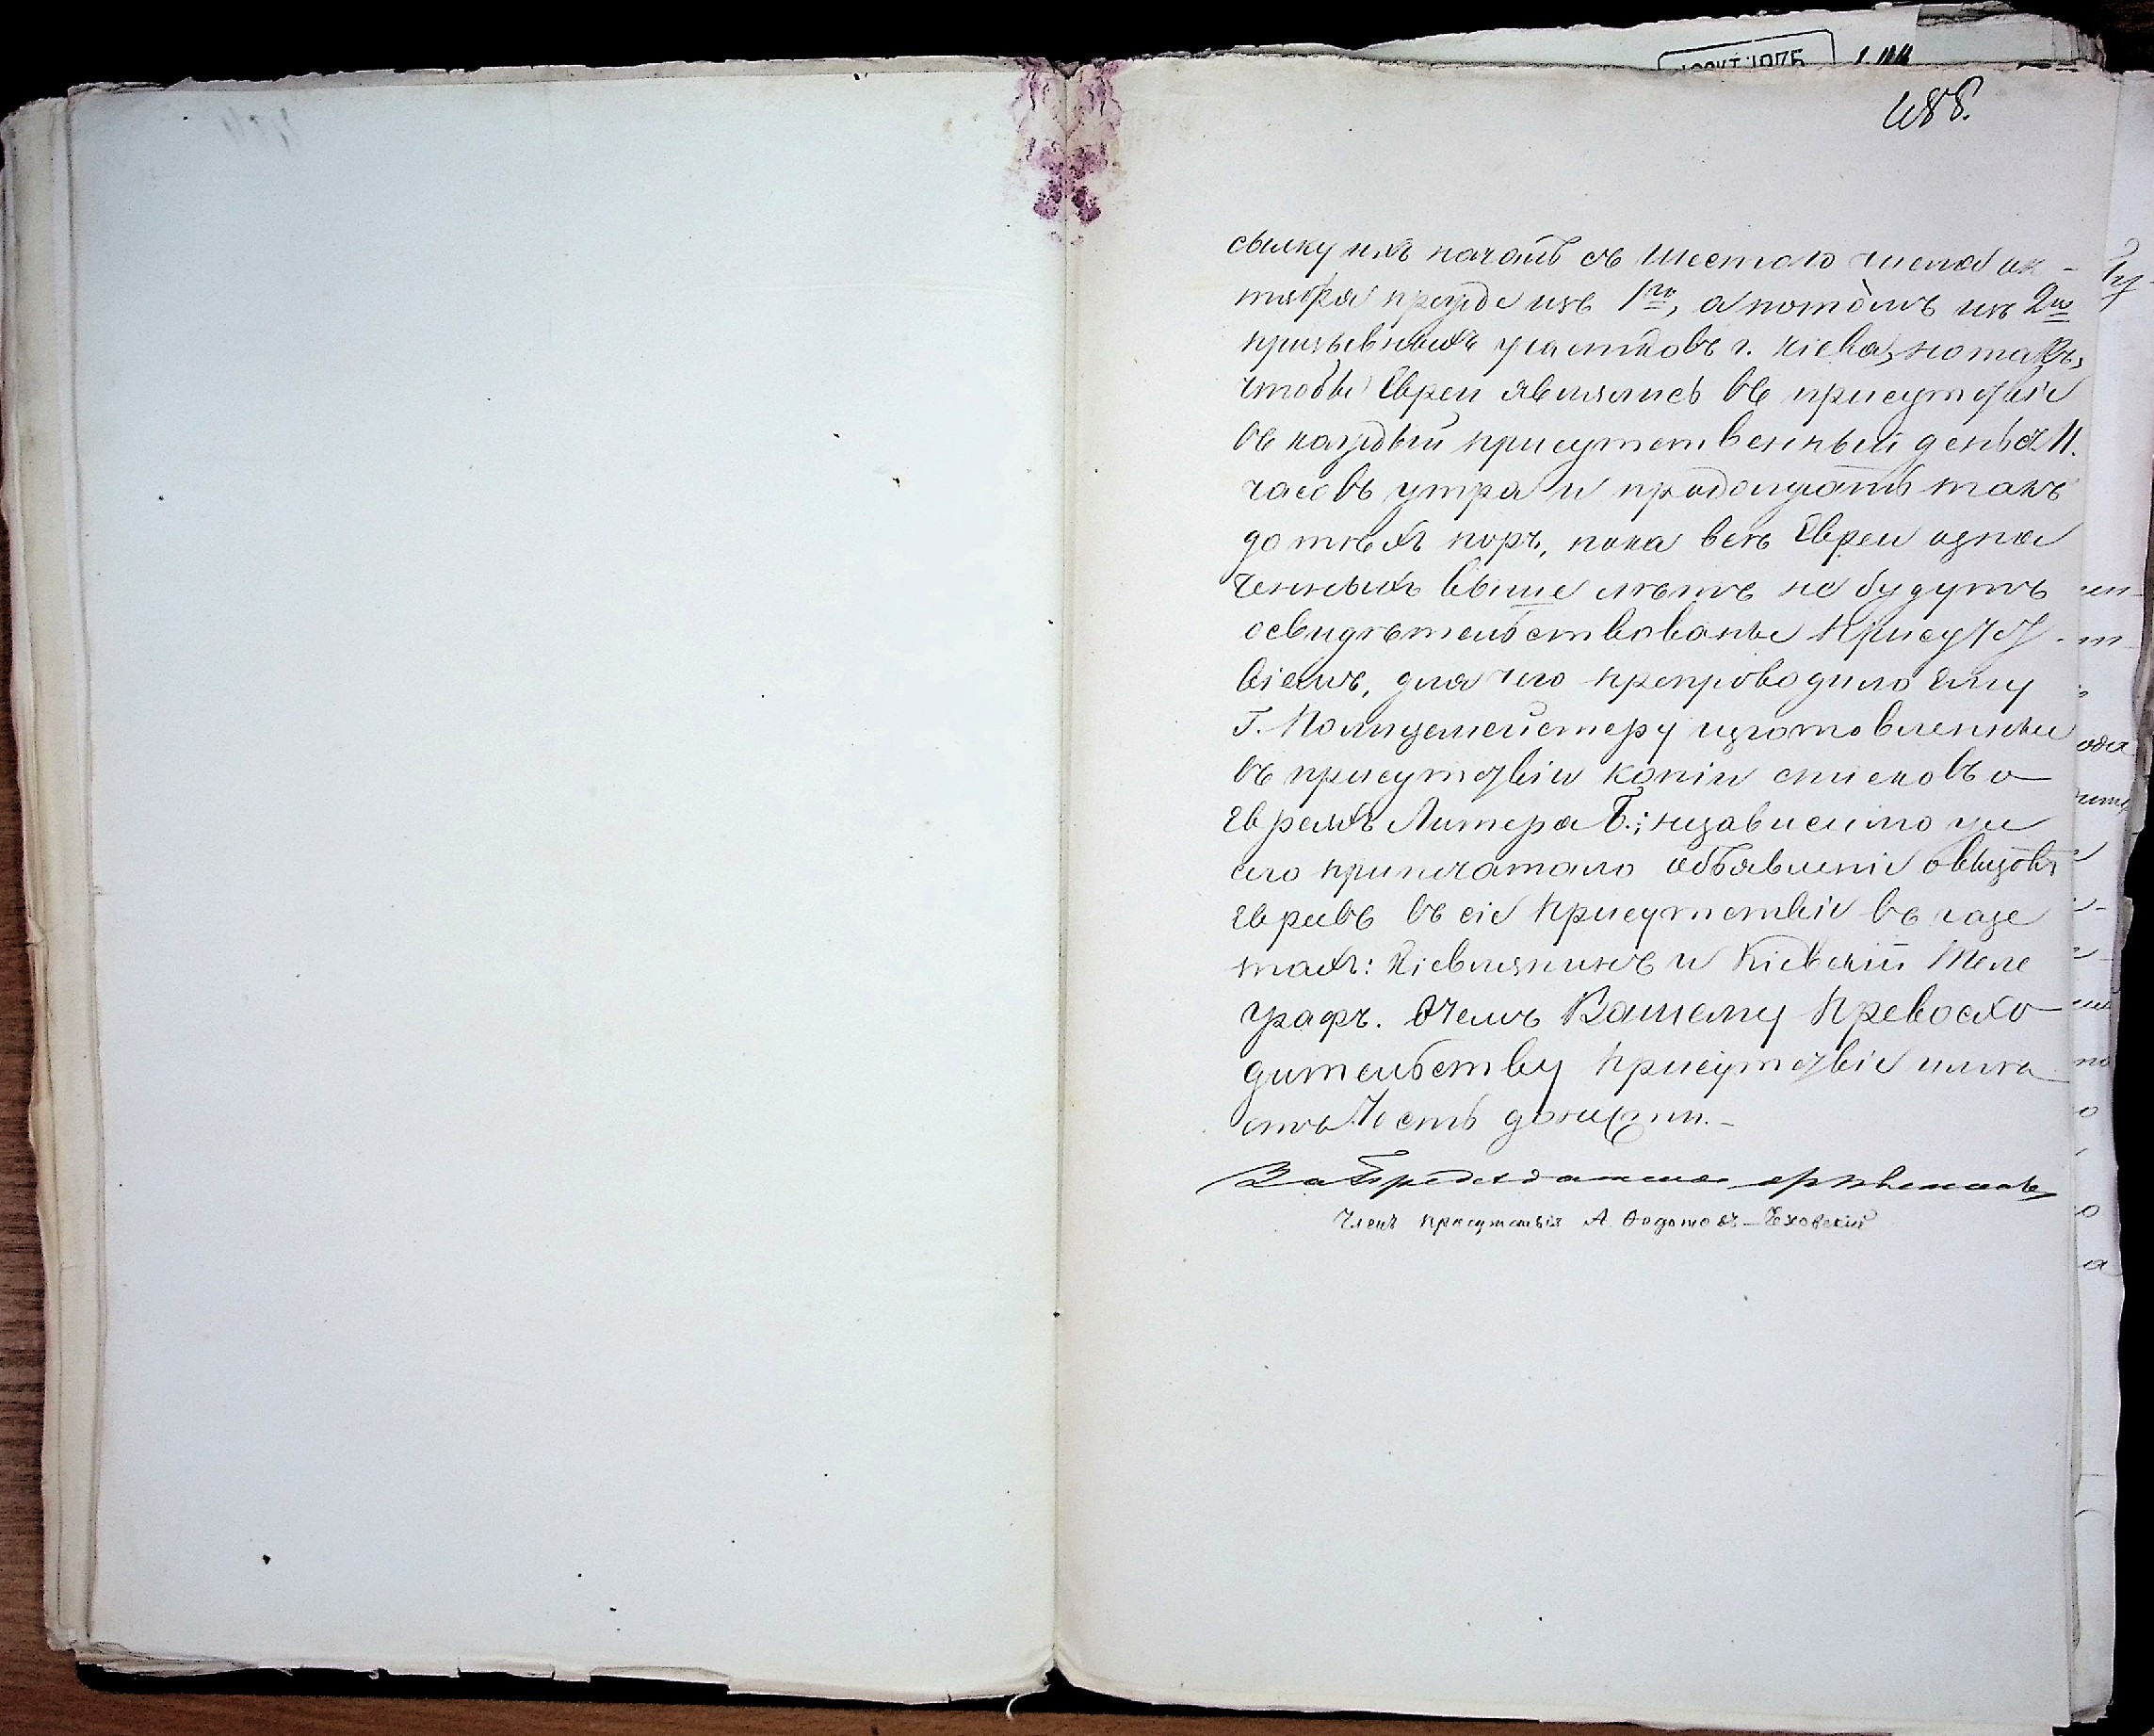 488.
сылку ихъ начать съ шестого числа ок-
тября прежде изъ 1го, а потомъ изъ 2го
призывныхъ участковъ г. Кіева, но такъ,
чтобы Евреи являлись въ присутствіе
въ каждый присутственный день съ 11.
часовъ утра и продолжать такъ
до тѣхъ поръ, пока всѣ Евреи озна
ченныхъ выше лѣтъ не будутъ
освидѣтельствованы Присутст-
віемъ, для чего препроводило ему
Г. Полицемейстеру изготовленныи
въ присутствіи копіи списковъ о
евреяхъ Литера Б.; независимо же
сего припечатало объявленіе о вызовѣ
евреевъ въ сіе Присутствіе въ газе
тахъ: Кіевлянинъ и Кіевскій Теле
графъ. О чемъ Вашему Превосхо
дительству Присутствіе имѣ
етъ честь донести.-
За Предсѣдателя
Членъ присутствія А. Ѳедотовъ-Чеховскій